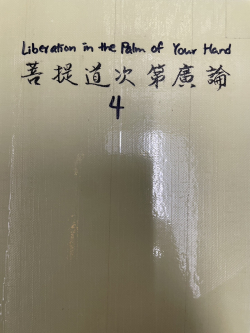 Liberation in the Palm of Your Hand
菩提道次第廣論
4